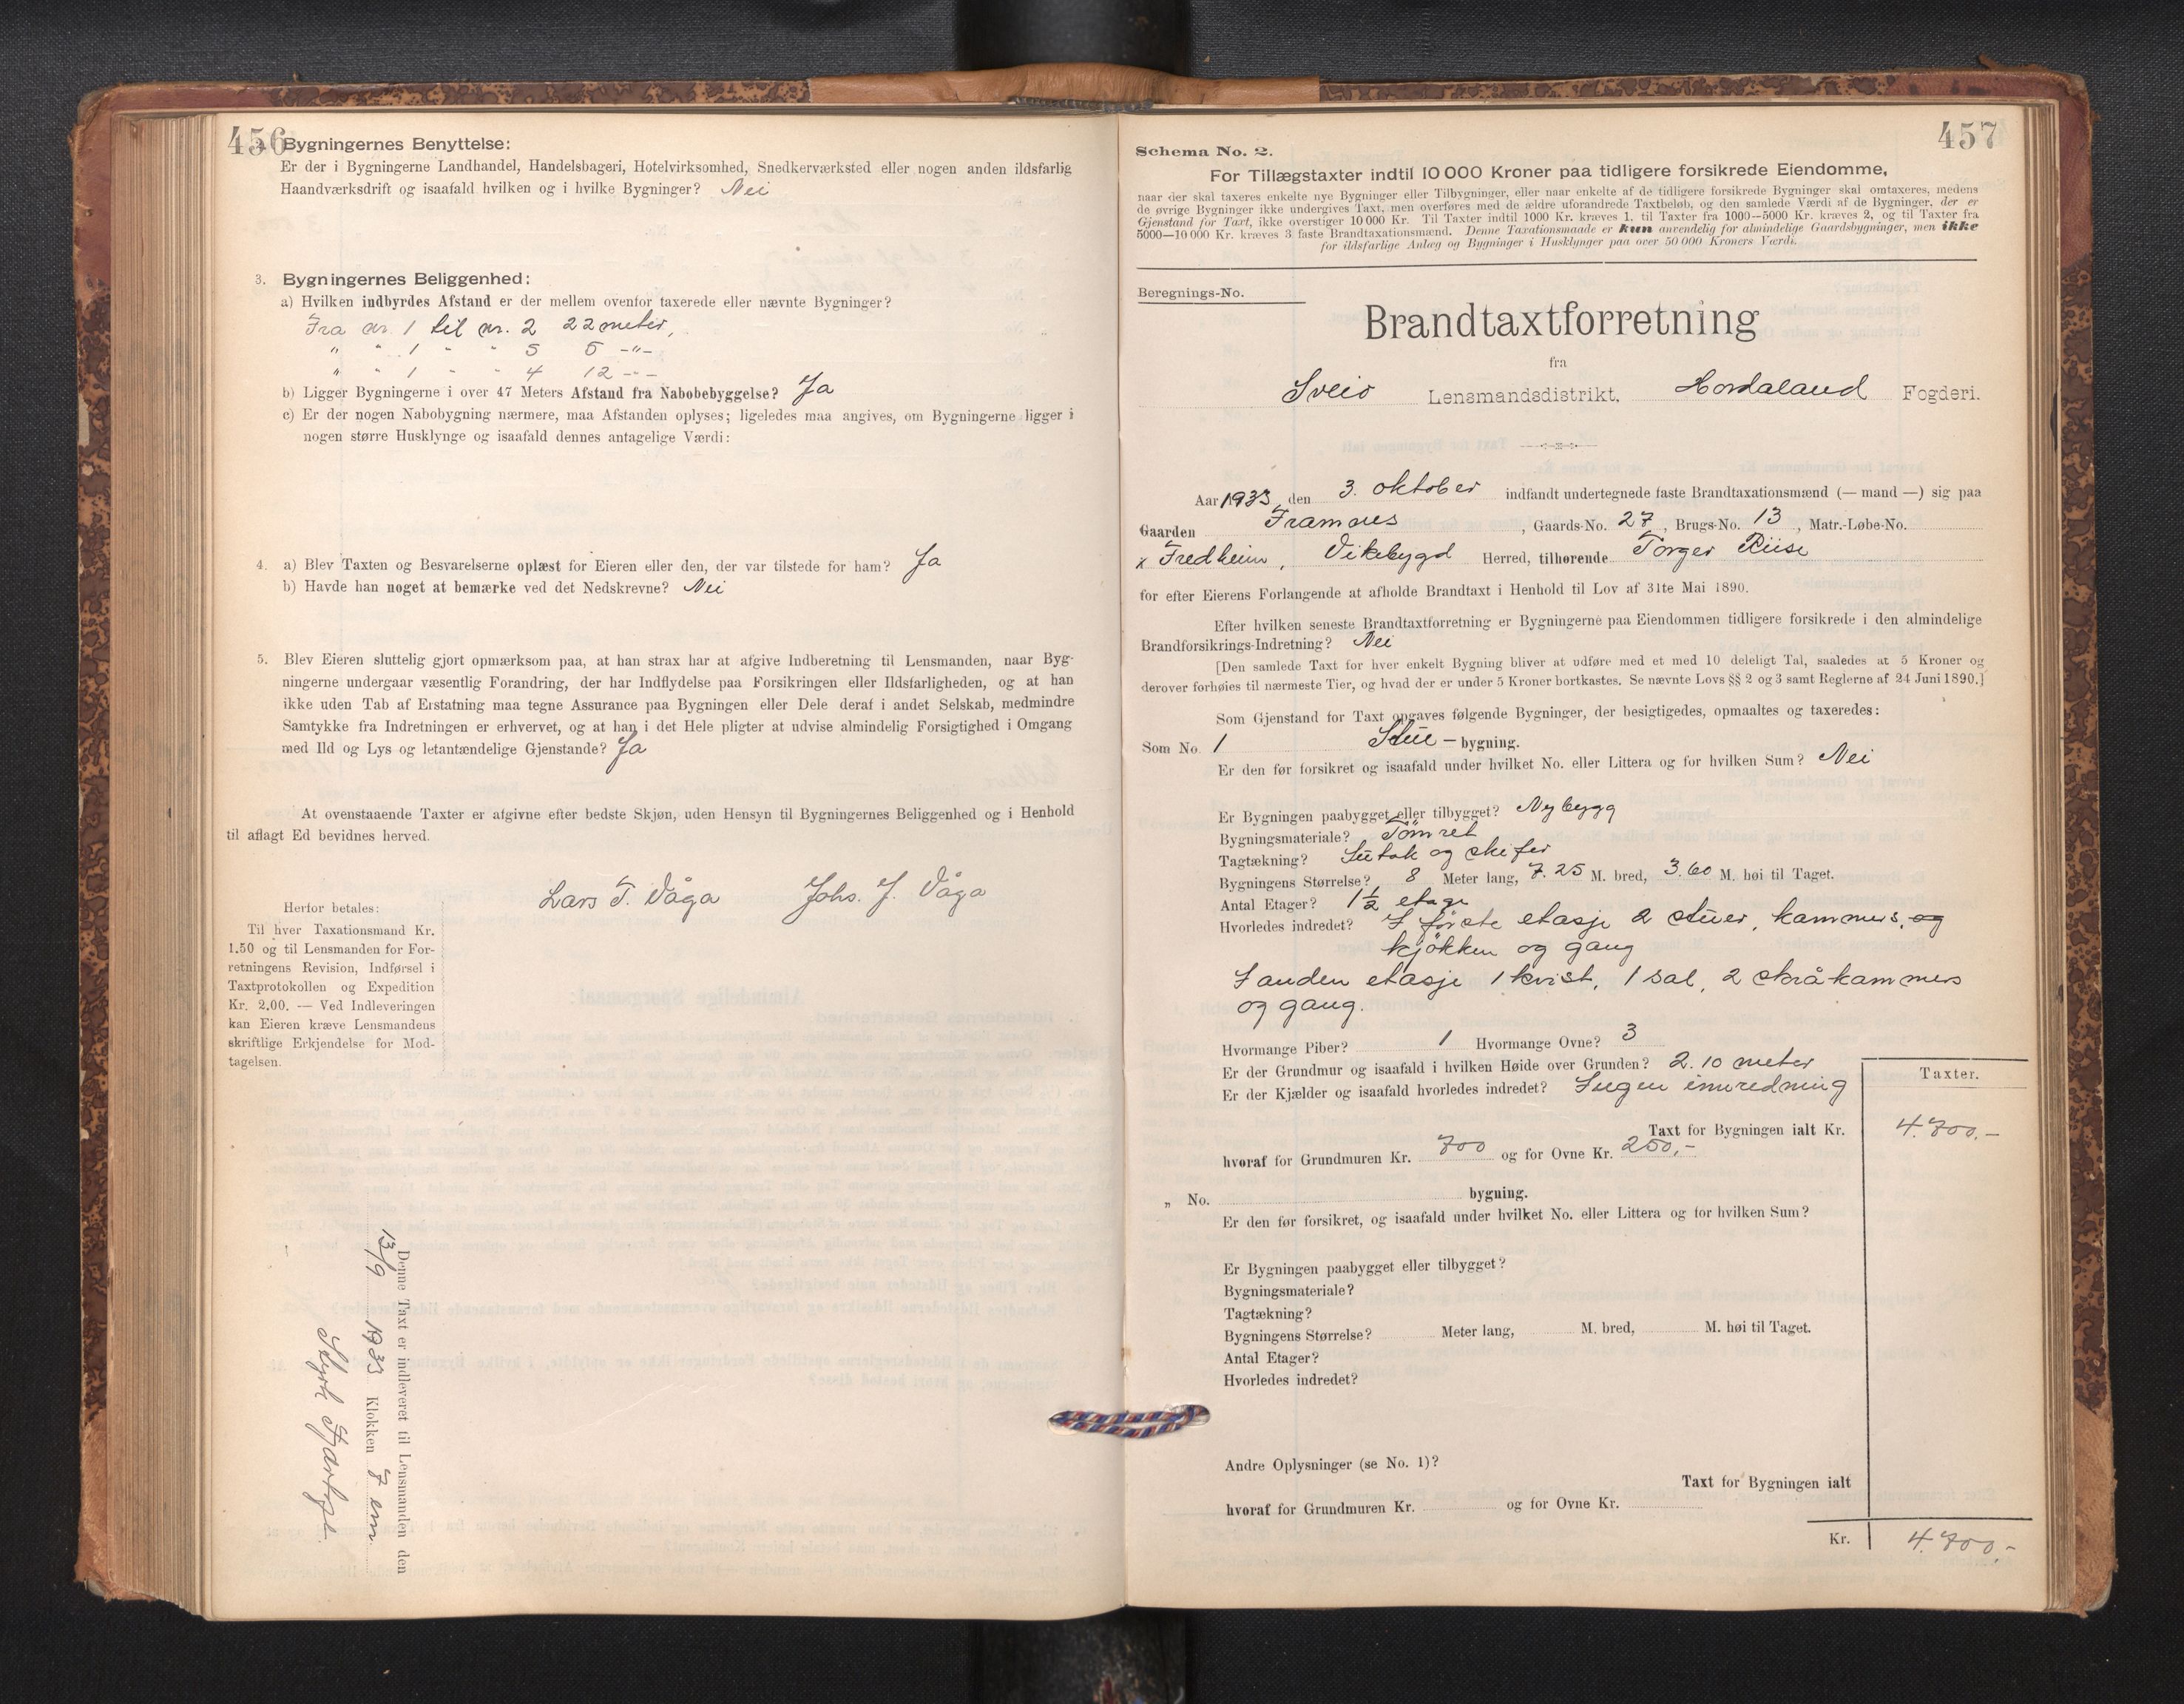 456
2. Bygningernes Benyttelse:
Er der i Bygningerne Landhandel, Handelsbageri, Hotelvirksomhed, Snedkerværksted eller nogen anden ildsfarlig
Haandværksdrift og isaafald hvilken og i hvilke Bygninger? Nei
3. Bygningernes Beliggenhed:
a) Hvilken indbyrdes Afstand er der mellem ovenfor taxerede eller nævnte Bygninger?
Fra nr. 1 til nr. 2 22 meter,
" " 1 " " 5 5 -"-
" " 1 " " 4 12 -"-
b) Ligger Bygningerne i over 47 Meters Afstand fra Nabobebyggelse? Ja
c) Er der nogen Nabobygning nærmere, maa Afstanden oplyses; ligeledes maa angives, om Bygningerne ligger i
nogen større Husklynge og isaafald dennes antagelige Værdi:
4. a) Blev Taxten og Besvarelserne oplæst for Eieren eller den, der var tilstede for ham? Ja
b) Havde han noget at bemærke ved det Nedskrevne? Nei
5. Blev Eieren sluttelig gjort opmærksom paa, at han strax har at afgive Indberetning til Lensmanden, naar Byg-
ningerne undergaar væsentlig Forandring, der har Indflydelse paa Forsikringen eller Ildsfarligheden, og at han
ikke uden Tab af Erstatning maa tegne Assurance paa Bygningen eller Dele deraf i andet Selskab, medmindre
Samtykke fra Indretningen er erhvervet, og at han i det Hele pligter at udvise almindelig Forsigtighed i Omgang
med Ild og Lys og letantændelige Gjenstande? Ja
At ovenstaaende Taxter er afgivne efter bedste Skjøn, uden Hensyn til Bygningernes Beliggenhed og i Henhold
til aflagt Ed bevidnes herved.
Lars T. Våga Johs. J. Våga
Herfor betales:
Til hver Taxationsmand Kr.
1.50 og til Lensmanden for For-
retningens Revision, Indførsel i
Taxtprotokollen og Expedition
Kr. 2.00. — Ved Indleveringen
kan Eieren kræve Lensmandens
skriftlige Erkjendelse for Mod-
tagelsen.
Denne Taxt er indleveret til Lensmanden den
13/9 1933 Klokken 7 em.
457
Schema No. 2.
For Tillægstaxter indtil 10 000 Kroner paa tidligere forsikrede Eiendomme,
naar der skal taxeres enkelte nye Bygninger eller Tilbygninger, eller naar enkelte af de tidligere forsikrede Bygninger skal omtaxeres, medens
de øvrige Bygninger ikke undergives Taxt, men overføres med de ældre uforandrede Taxtbeløb, og den samlede Værdi af de Bygninger, der er
Gjenstand for Taxt, ikke overstiger 10 000 Kr. Til Taxter indtil 1000 Kr. kræves 1, til Taxter fra 1000—5000 Kr. kræves 2, og til Taxter fra
5000—10 000 Kr. kræves 3 faste Brandtaxationsmænd. Denne Taxationsmaade er kun anvendelig for almindelige Gaardsbygninger, men ikke
for ildsfarlige Anlæg og Bygninger i Husklynger paa over 50 000 Kroners Værdi.
Beregnings-No.
Brandtaxtforretning
fra
Sveio Lensmandsdistrikt, Hordaland Fogderi.
Aar 1933, den 3. oktober indfandt undertegnede faste Brandtaxationsmænd (— mand —) sig paa
Gaarden Framnes, Gaards-No. 27, Brugs-No. 13, Matr.-Løbe-No.
x Fredheim, Vikebygd Herred, tilhørende Torger Riise
for efter Eierens Forlangende at afholde Brandtaxt i Henhold til Lov af 31te Mai 1890.
Efter hvilken seneste Brandtaxtforretning er Bygningerne paa Eiendommen tidligere forsikrede i den almindelige
Brandforsikrings-Indretning? Nei
[Den samlede Taxt for hver enkelt Bygning bliver at udføre med et med 10 deleligt Tal, saaledes at 5 Kroner og
derover forhøies til nærmeste Tier, og hvad der er under 5 Kroner bortkastes. Se nævnte Lovs §§ 2 og 3 samt Reglerne af 24 Juni 1890.]
Som Gjenstand for Taxt opgaves følgende Bygninger, der besigtigedes, opmaaltes og taxeredes:
Som No. 1 Stue - bygning.
Er den før forsikret og isaafald under hvilket No. eller Littera og for hvilken Sum? Nei
Er Bygningen paabygget eller tilbygget? Nybygg
Bygningsmateriale? Tömret
Tagtækning? Sutak og skifer
Bygningens Størrelse? 8 Meter lang, 7.25 M. bred, 3.60 M. høi til Taget.
Antal Etager? 1½ etage
Hvorledes indredet? I förste etasje 2 stuer, kammers, og
kjökken og gang
I anden etasje 1 kvist, 1 sal, 2 skråkammers
og gang.
Hvormange Piber? 1 Hvormange Ovne? 3
Er der Grundmur og isaafald i hvilken Høide over Grunden? 2.10 meter
Er der Kjælder og isaafald hvorledes indredet? Ingen innredning
Taxter.
Taxt for Bygningen ialt Kr. 4.700.-
hvoraf for Grundmuren Kr. 700 og for Ovne Kr. 250,-
„ No. bygning.
Er den før forsikret, og isaafald under hvilket No. eller Littera og for hvilken Sum?
Er Bygningen paabygget eller tilbygget?
Bygningsmateriale?
Tagtækning?
Bygningens Størrelse? Meter lang, M. bred, M. høi til Taget.
Antal Etager?
Hvorledes indredet?
Andre Oplysninger (se No. 1)?
Taxt for Bygningen ialt
hvoraf for Grundmuren Kr. og for Ovne Kr.
Kr. 4.700.-